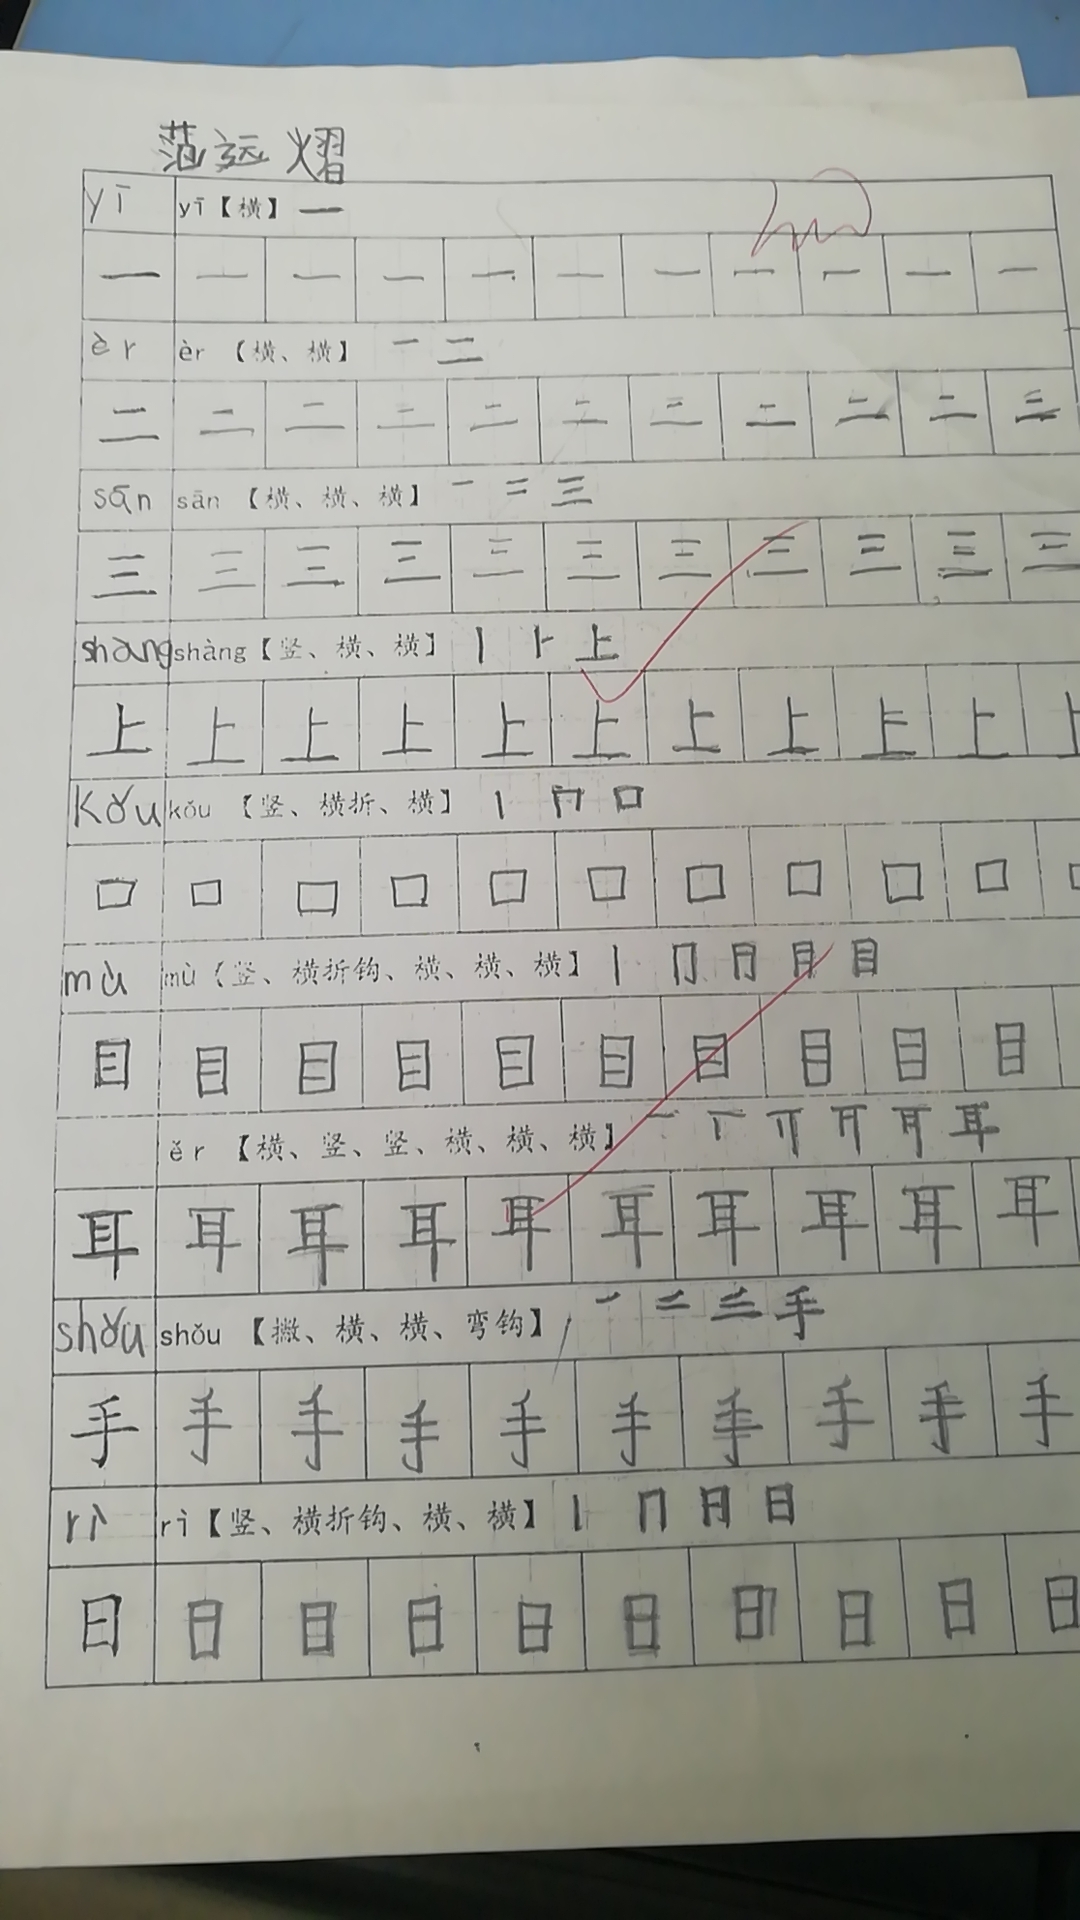 范远熠
yī yī【横】 一
一 一 一 一 一 一 一 一 一 一 一
èr èr 【横、横】 一 二
二 二 二 二 二 二 二 二 二 二 三
sān sān 【横、横、横】 一 二 三
三 三 三 三 三 三 三 三 三 三 三
shàng shàng【竖、横、横】 丨 ⺊ 上
上 上 上 上 上 上 上 上 上 上
kǒu kǒu 【竖、横折、横】 丨 冂 口
口 口 口 口 口 口 口 口 口 口
mù mù【竖、横折钩、横、横、横】 丨 冂 月 目
目 目 目 目 目 目 目 目 目 目
ěr 【横、竖、竖、横、横、横】 一 丅 耳
耳 耳 耳 耳 耳 耳 耳 耳 耳 耳
shǒu shǒu 【撇、横、横、弯钩】 一 二 三 手
手 手 手 手 手 手 手 手 手 手
rì rì【竖、横折钩、横、横】 丨 冂 日
日 日 日 日 日 日 日 日 日 日